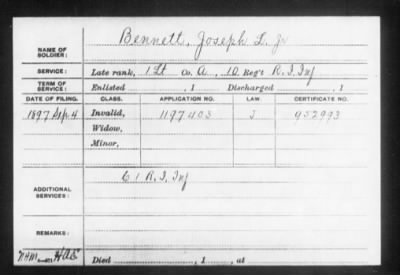 NAME OF SOLDIER: Bennett, Joseph L. Jr
SERVICE: Late rank, 1 Lt Co. A, 10 Reg't R.I. Inf
TERM OF SERVICE: Enlisted , 1 Discharged , 1
DATE OF FILING. CLASS. APPLICATION NO. LAW CERTIFICATE NO.
1897 Sep 4 Invalid, 1197403 J 952993
Widow,
Minor,
ADDITIONAL SERVICES: C 1 R.I. Inf
REMARKS:
Died , 1 , at